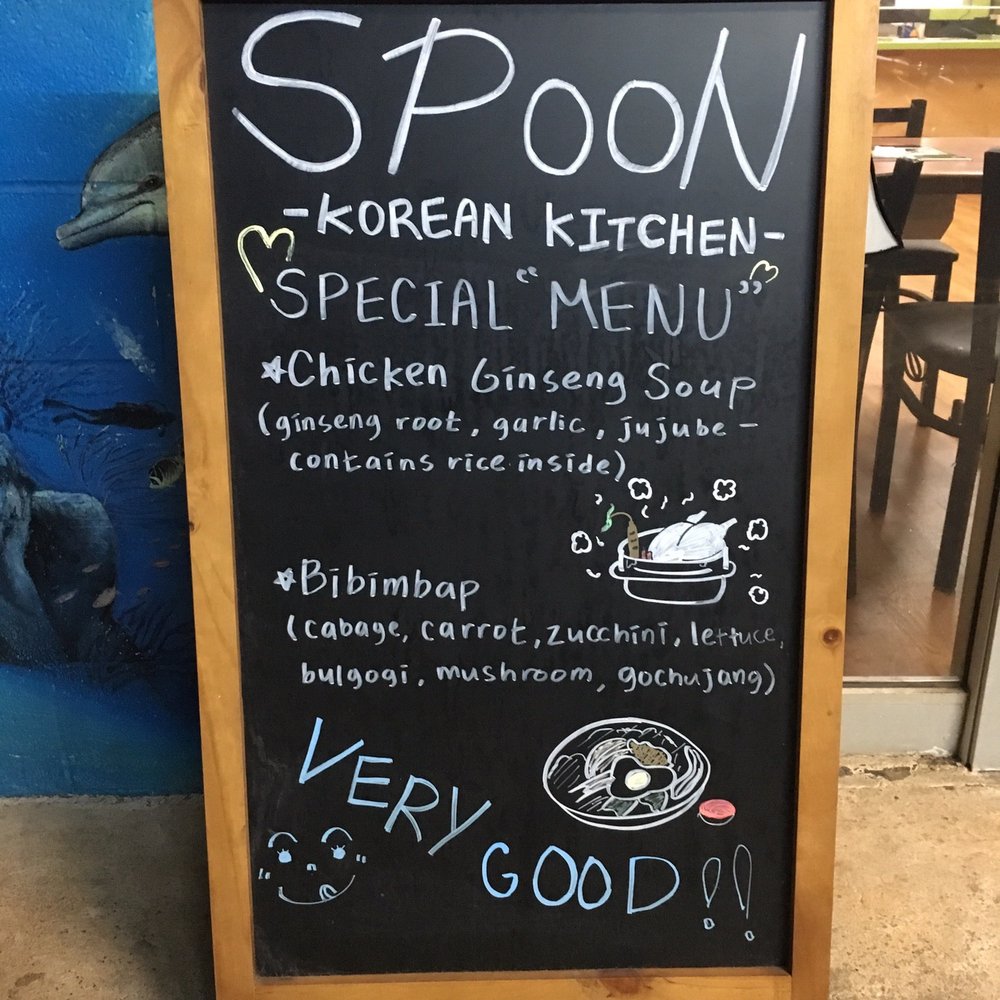 SPOON
-KOREAN KITCHEN-
SPECIAL "MENU"
Chicken Ginseng Soup
(ginseng root, garlic, jujube -
contains rice inside)
Bibimbap
(cabage, carrot, zucchini, lettuce,
bulgogi, mushroom, gochujang)
VERY
GOOD!!